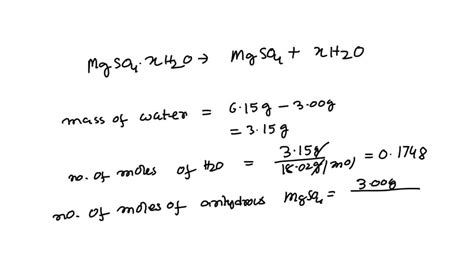 MgSO4·xH2O → MgSO4 + xH2O
mass of water = 6.15g − 3.00g
= 3.15g
no. of moles of H2O = 3.15g / 18.02g/mol = 0.1748
no. of moles of anhydrous MgSO4 = 3.00g